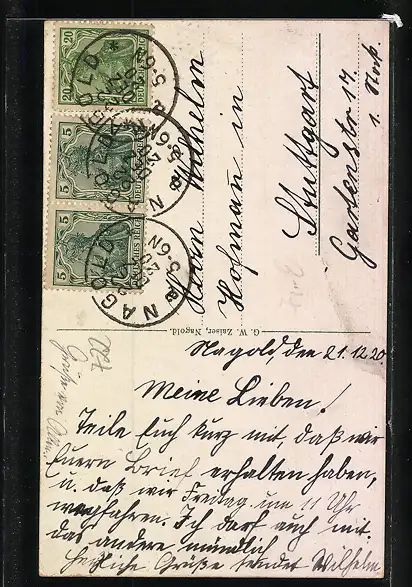 20
5
5
DEUTSCHES REICH
NAGOLD
5-6N
Herrn Wilhelm
Hofmann in
Stuttgart
Gartenstr 17.
1. Stock.
G. W. Zaiser, Nagold.
Nagold, den 21.12.20.
Meine Lieben!
Teile Euch kurz mit, daß wir
Euern Brief erhalten haben,
u. daß wir Freitag um 11 Uhr
wegfahren. Ich darf auch mit.
das andere mündlich
Herzliche Grüße sendet Wilhelm